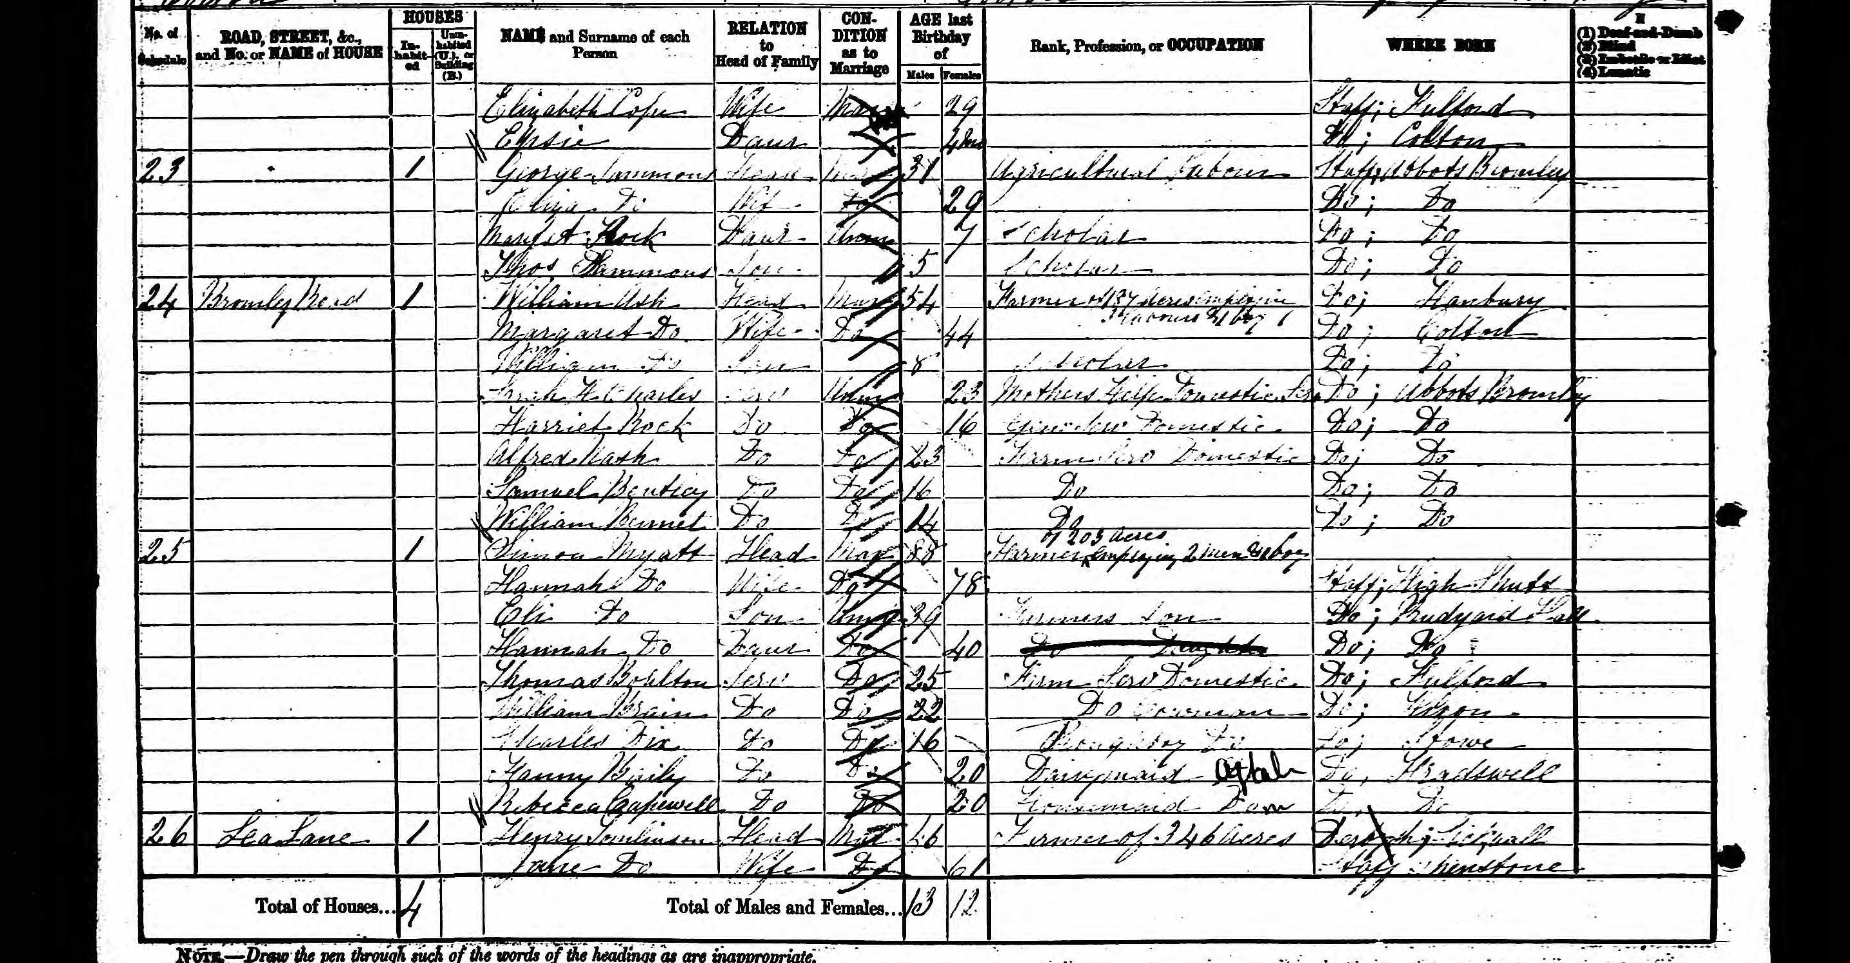 No. of Schedule ROAD, STREET, &c., and No. or NAME of HOUSE HOUSES Inhabited Uninhabited (U.), or Building (B.) NAME and Surname of each Person RELATION to Head of Family CONDITION as to Marriage AGE last Birthday of Males Females Rank, Profession, or OCCUPATION WHERE BORN (1) Deaf-and-Dumb (2) Blind (3) Imbecile or Idiot (4) Lunatic
Elizabeth Cope Wife Mar 29 Staff; Fulford
Daur Do; Colton
23 1 George Sammons Head Mar 31 Agricultural Labour Staff; Abbots Bromley
Eliza Do Wife Do 29 Do; Do
Margret Rock Daur Unm 7 Scholar Do; Do
Thos Sammons Son 5 Scholar Do; Do
24 Bromley Road 1 William Ash Head Mar 54 Farmer of 137 acres employing Do; Hanbury
3 labours & 1 boy
Margaret Do Wife Do 44 Do; Colton
William Do Son 8 Scholar Do; Do
Sarah H Charles Serv Unm 23 Mothers Help Domestic Serv Do; Abbots Bromley
Harriet Rock Do Do 16 Genl Serv Domestic Do; Do
Alfred Nash Do Do 23 Farm Serv Domestic Do; Do
Samuel Bentley Do Do 16 Do Do; Do
William Do Do 14 Do Do; Do
of 203 acres
25 1 Simon Myatt Head Mar 88 Farmer employing 2 men & 1 boy
Hannah Do Wife Do 78 Staff; High Shutt
Eli Do Son Unm 39 Farmers Son Do; Rudyard Hall
Hannah Do Daur Do 40 Do Daughter Do; Do
Thomas Boulton Serv Do 25 Farm Serv Domestic Do; Fulford
William Do Do 22 Do Cowman Do; Hixon
Charles Dix Do Do 16 Ploughboy Do Do; Stowe
Fanny Baily Do Do 20 Dairymaid Do; Fradswell
Rebecca Capewell Do Do 20 Housemaid Dom Do; Do
26 Lea Lane 1 Henry Tomlinson Head Mar 46 Farmer of 346 acres
Jane Do Wife Do 61 Staff Shenstone
Total of Houses... 4 Total of Males and Females... 13 12
NOTE.—Draw the pen through such of the words of the headings as are inappropriate.